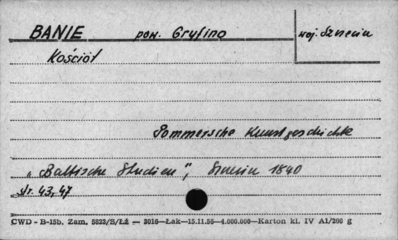 BANIE pow. Gryfino woj. Szczecin
Kościół
Pommersche Kunstgeschichte
„Baltische Studien", Szczecin 1840
str. 43, 47
CWD - B-15b. Zam. 5323/S/Łż — 3016—Łak—15.11.55—4.000.000—Karton kl. IV A1/200 g